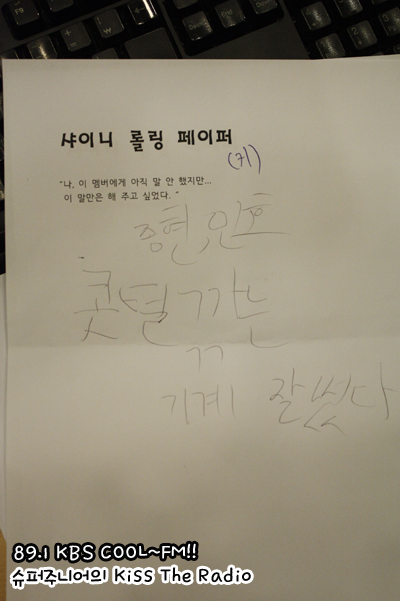 샤이니 롤링 페이퍼
(키)
"나, 이 멤버에게 아직 말 안 했지만...
이 말만은 해 주고 싶었다. "
종현, 민호
콧털 깎는
기계 잘썼다
89.1 KBS COOL~FM!!
슈퍼주니어의 Kiss The Radio